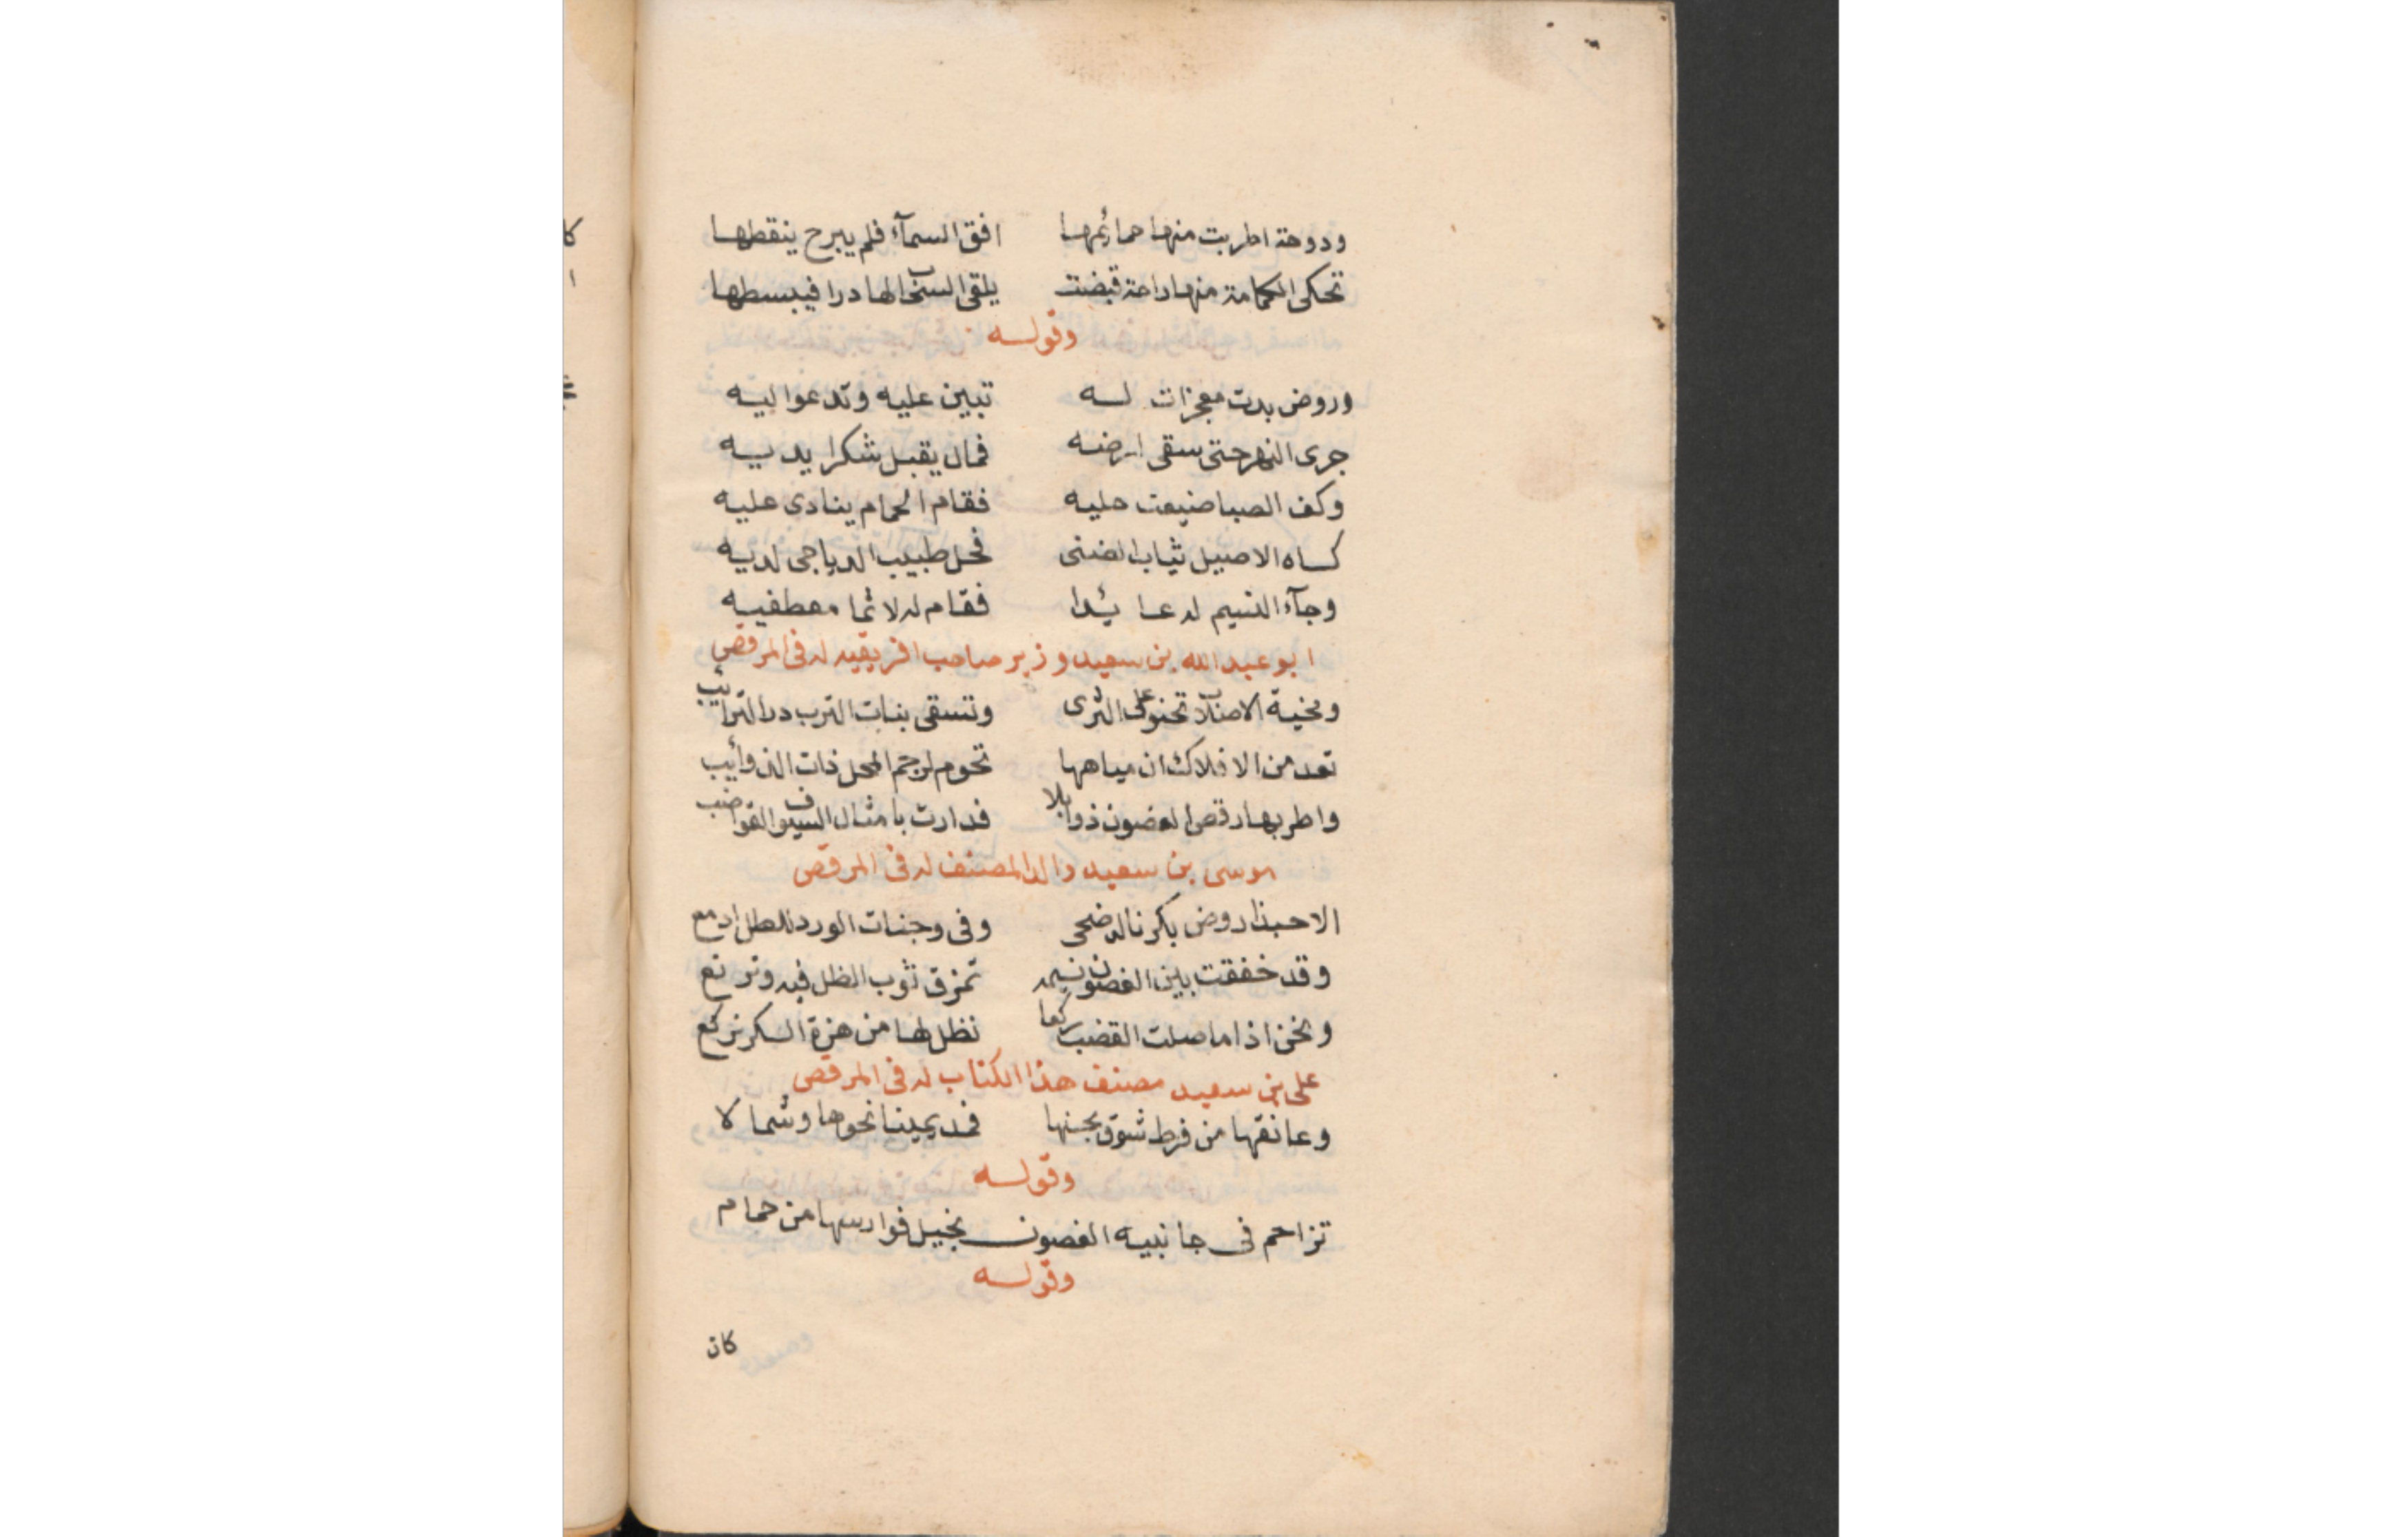 ودوحة اطربت منها حمائمها افق السمآء فلم يبرح ينقطها
تحكى الكمامة منها راحة قبضت يلقى السحاب لها درا فيبسطها
وقوله
وروض بدت معجزات له تبين عليه وتدعوا ليه
جرى النهر حتى سقى ارضه فمال يقبل شكرا يديه
وكف الصبا ضيعت حليه فقام الحمام ينادى عليه
كساه الاصيل ثياب الضنى فحل طبيب الدياجى لديه
وجآء النسيم له عائدا فقام له لاثما معطفيه
ابو عبد الله بن سعيد وزير صاحب افريقيه له فى المرقص
ومخية الاصلاب تحنو على الثرى وتسقى بنات الترب در الترائب
تعد من الافلاك ان مياهها تحوم لرجم المحل ذات الذوائب
واطربها رقص الغصون ذوابلا فدارت بامثال السيوف القواضب
موسى بن سعيد والد المصنف له فى المرقص
الا حبذا روض بكرنا له ضحى وفى وجنات الورد للطل ادمع
وقد خفقت بين الغصون نسيمه تمزق ثوب الظل فيه وترقع
ونحن اذا ما صلت القضب ركعا نظل لها من هزة السكر نركع
على بن سعيد مصنف هذا الكتاب له فى المرقص
وعانقها من فرط شوق بحسنها فمد يمينا نحوها وشمالا
وقوله
تزاحم فى جانبيه الغصون بخيل فوارسها من حمام
وقوله
كان